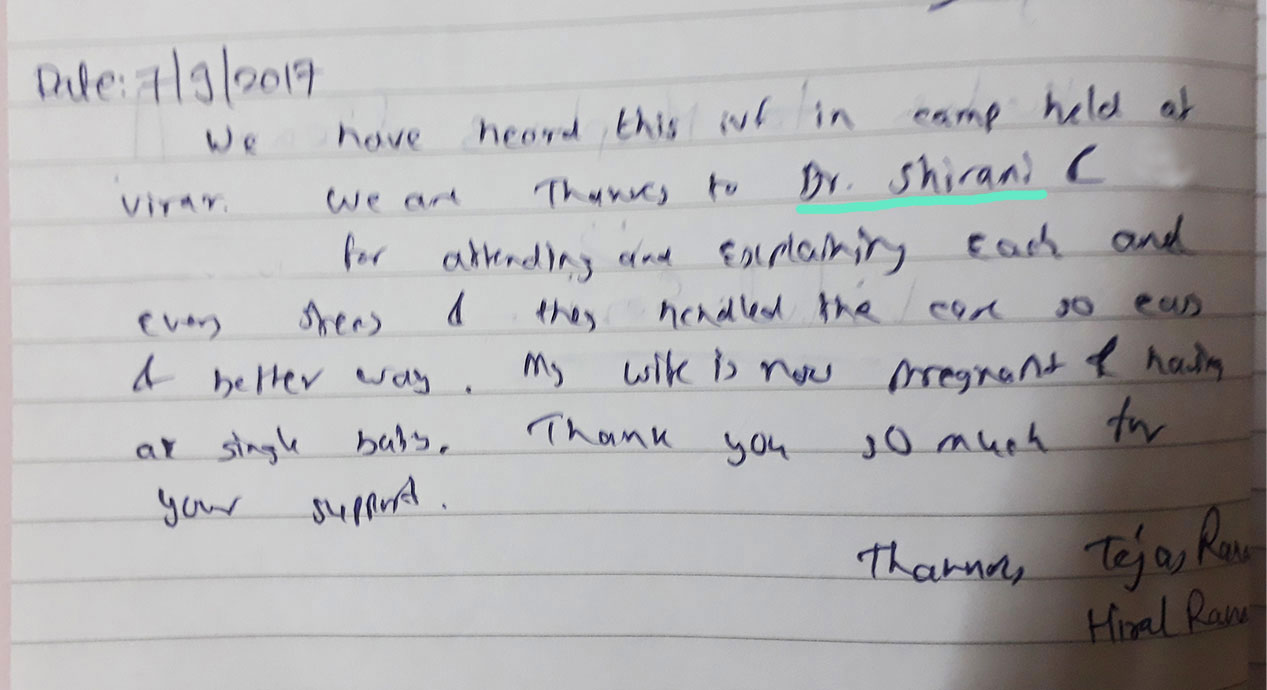 Date: 7/9/2017
We have heard this ivf in camp held at
virar. We are Thanks to Dr. Shirani C
for attending and Explaining Each and
every steps & they handled the case so easy
& better way. My wife is now pregnant & having
at single baby. Thank you so much for
your support.
Thanks, Tejas
Hiral